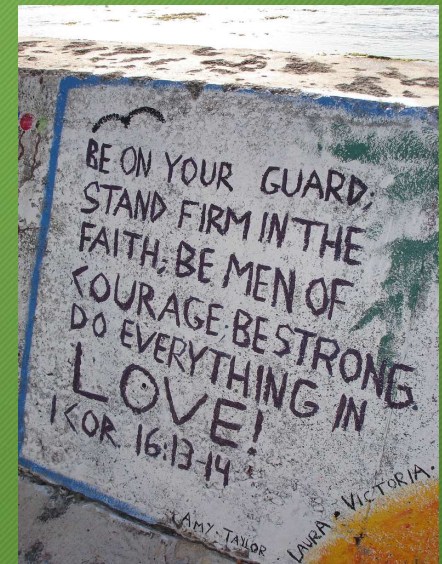 BE ON YOUR GUARD;
STAND FIRM IN THE
FAITH; BE MEN OF
COURAGE; BE STRONG.
DO EVERYTHING IN
LOVE!
1 COR. 16:13-14
AMY · TAYLOR
LAURA · VICTORIA ·